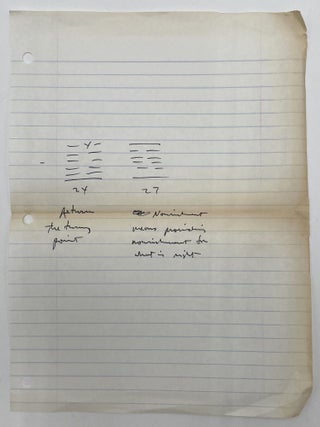 24 27
Return
the turning
point
Nourishment
means providing
nourishment for
what is right